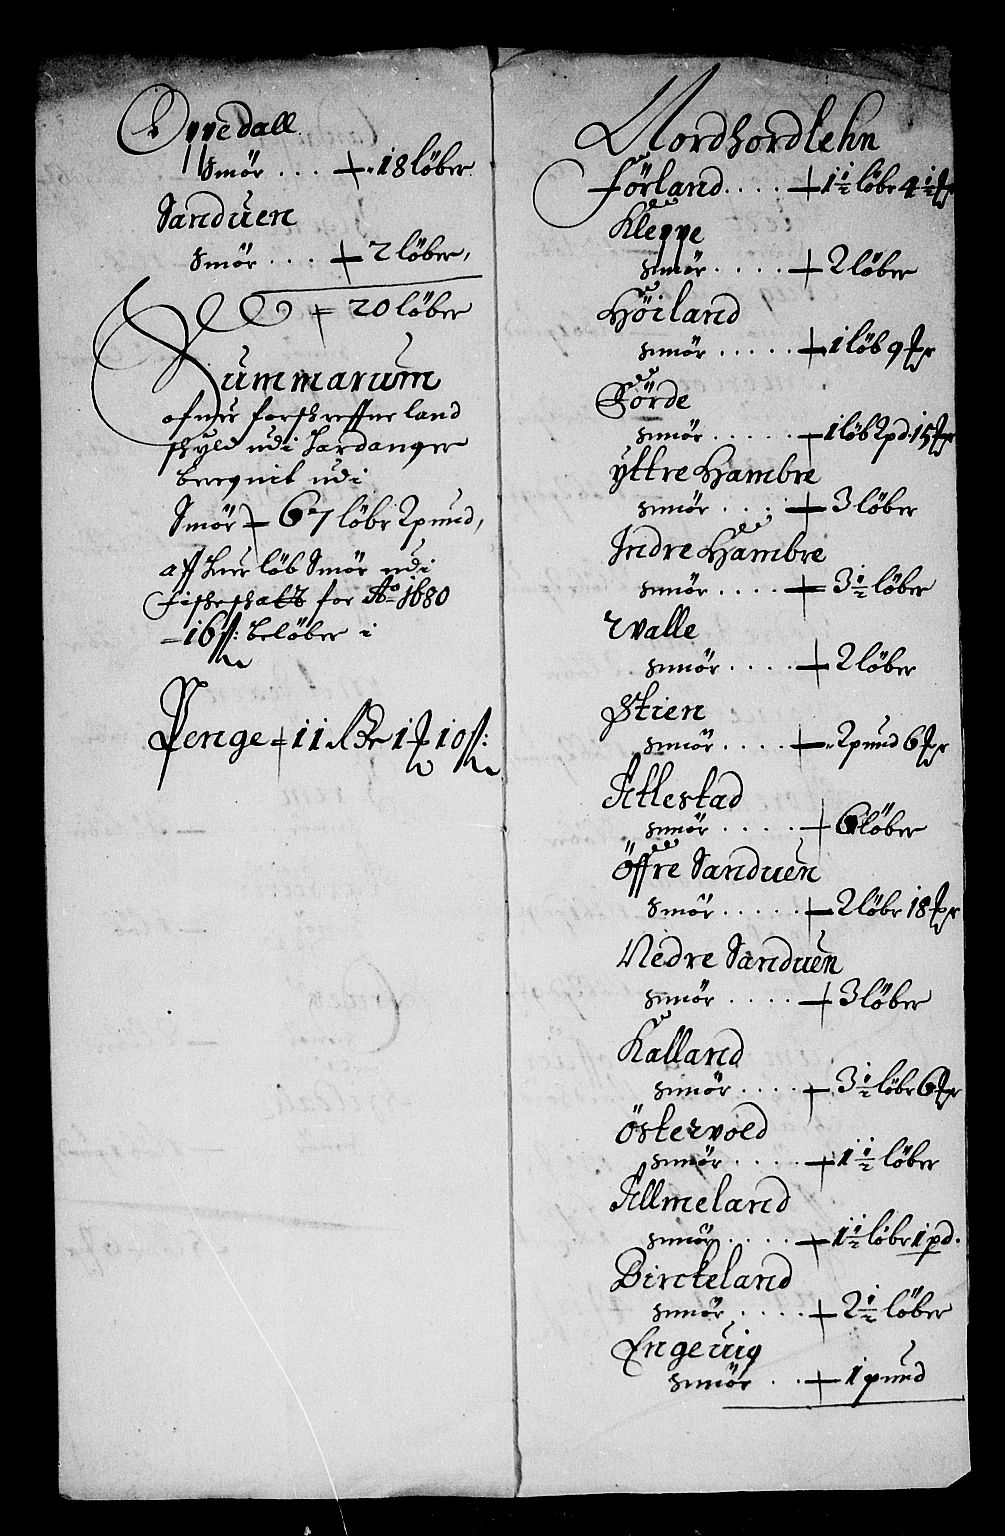 Oppedall
Smör . . . 18 löber
Sanduen
Smör . . . 2 löber,
20 löber
Summarum
ofuer forschreffne land
schyld udi Hardanger
beregnit udi
Smör 67 löbr 2 pund,
aff huer löb Smör udi
fischeschatt for Ao 1680
16 ß: belöber i
Penge 11 1 10 ß:
Nordhordlehn
Förland . . . . 1½ löbr 4½
Kleppe
Smör . . . . 2 löber
Höiland
Smör . . . . . 1 löb 9
Förde
Smör . . . . . 1 löb 2 pd 15
Yttre Hambre
Smör . . . . 3 löber
Indre Hambre
Smör . . . . 3½ löber
Smör . . . . 2 löber
Stien
Smör . . . . 2 pund 6
Attlestad
Smör . . . . 6 löber
Öffre Sanduen
Smör . . . . . 2 löbr 18
Nedre Sanduen
Smör . . . . 3 löber
Kalland
Smör . . . . 3½ löbr 6
Östervold
Smör . . . . 1½ löber
Allmeland
Smör . . . . 1½ löbr 1 pd.
Birckeland
Smör . . . . 2½ löber
Engeuig
Smör . . 1 pund